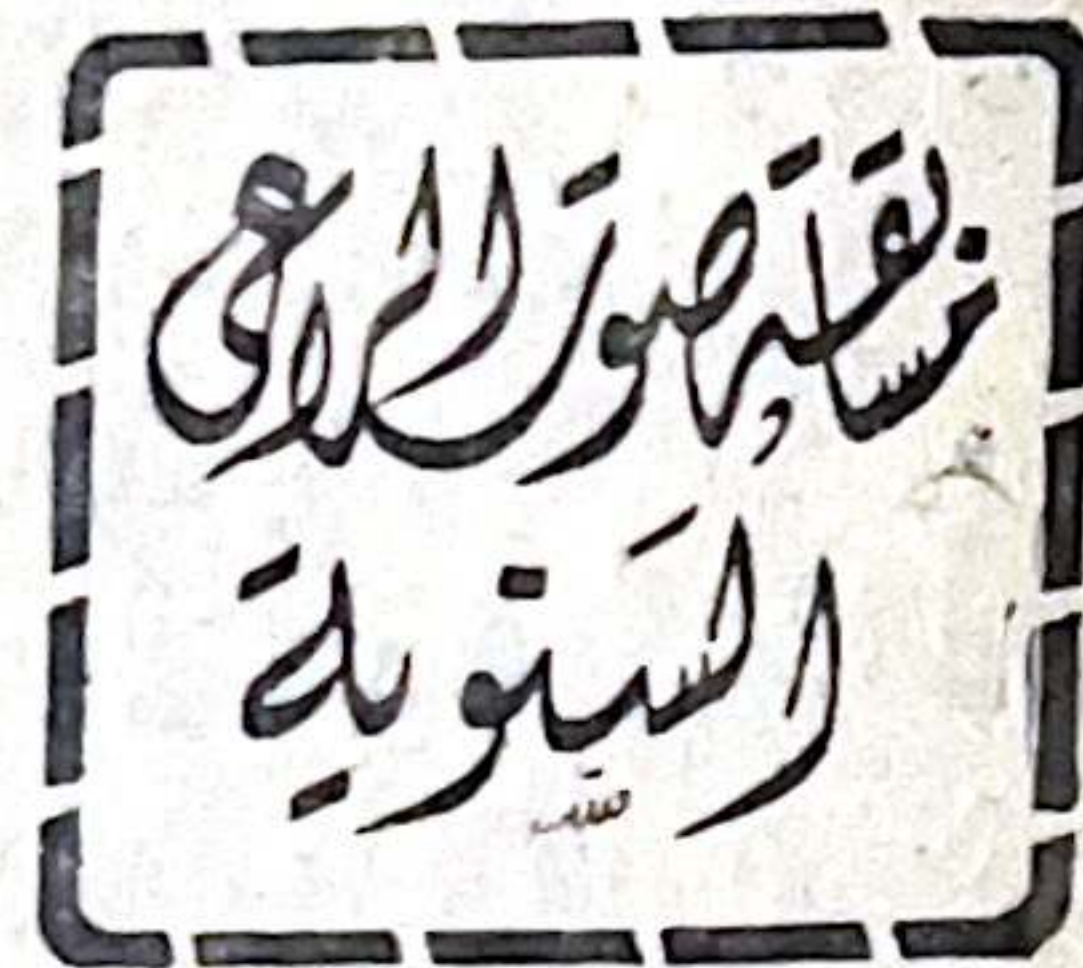 مسابقة صوت الراعى
السنوية